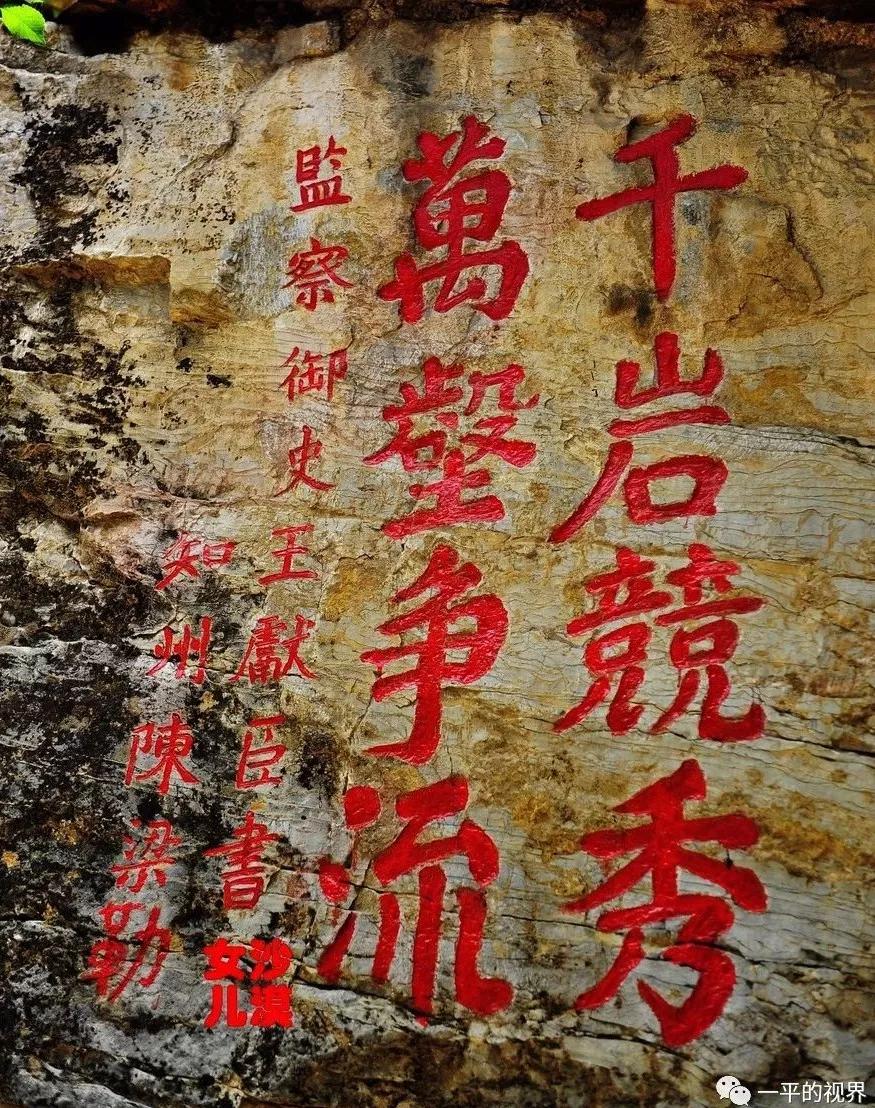 千岩競秀
萬壑争流
監察御史王獻臣書
知州陳梁勒
沙漠
女儿
一平的视界